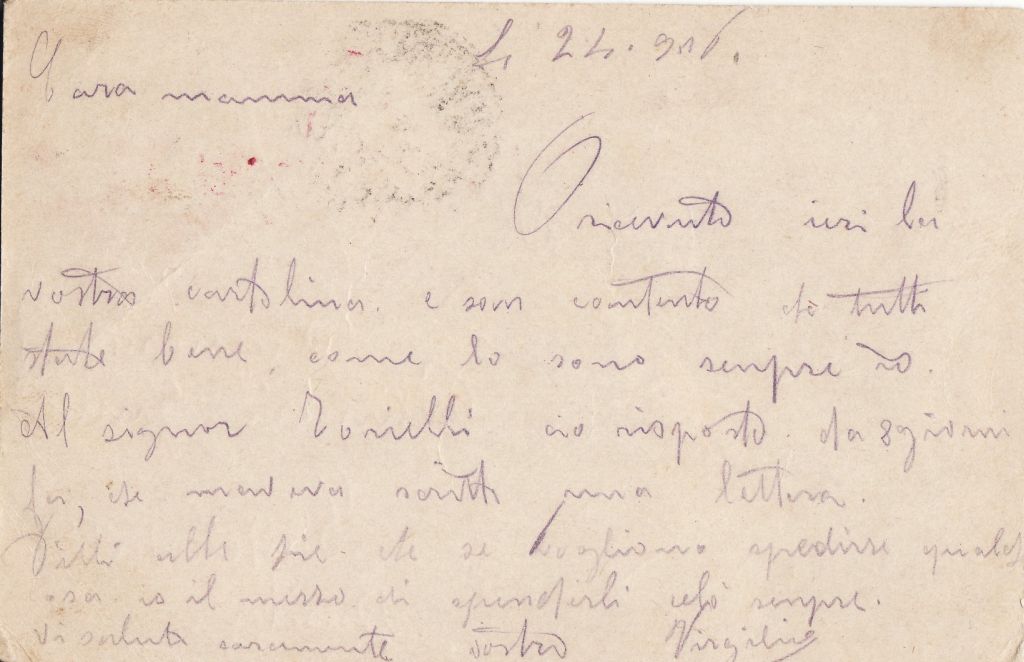 Li 24. 916.
Cara mamma
O ricevuto ieri la
vostra cartolina. e son contento che tutti
state bene, come lo sono senpre io.
Al signor Torielli cio risposto. da 8 giorni
fa, che maveva scritto una lettera.
Dilli alle zie. che se vogliono spedirse qualch
osa io il messo. di spenderli celò senpre.
Vi saluto caramente vostro Virgilio